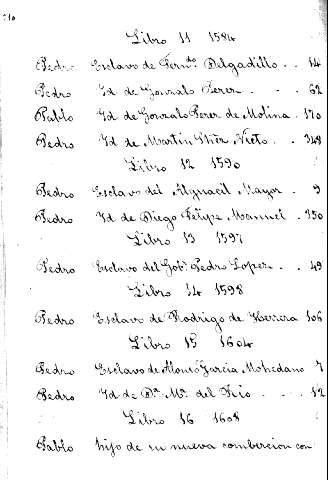 Libro 11 1584
Pedro Esclavo de Fern.do Delgadillo . . 14
Pedro Yd de Gonzalo Perez . . . 62
Pablo Yd de Gonzalo Perez de Molina . 170
Pedro Yd de Martin Nieto . . 348
Libro 12 1590
Pedro Esclavo del Alguacil Mayor . 9
Pedro Yd de Diego Felipe Manuel . 350
Libro 13 1597
Pedro Esclavo del Gob.r Pedro Lopez . . 49
Libro 14 1598
Pedro Esclavo de Rodrigo de Herrera 106
Libro 15 1604
Pedro Esclavo de Alonso Garcia Mohedano 7
Pedro Yd de D.a M.a del Rio . . . 12
Libro 16 1608
Pablo hijo de un nueva combercion con